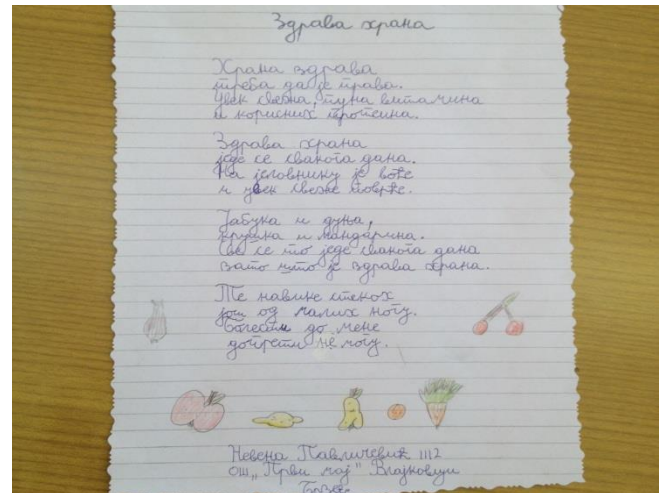 Здрава храна
Храна здрава
треба да је права.
Увек свежа, пуна витамина
и корисних протеина.
Здрава храна
једе се свакога дана.
На јеловнику је воће
и увек свеже поврће.
Јабука и дуња,
крушка и мандарина.
Све се то једе свакога дана
зато што је здрава храна.
Те навике стекох
још од малих ногу.
Болести до мене
допрети не могу.
Невена Павличевић III2
ОШ „Први мај" Влајковци